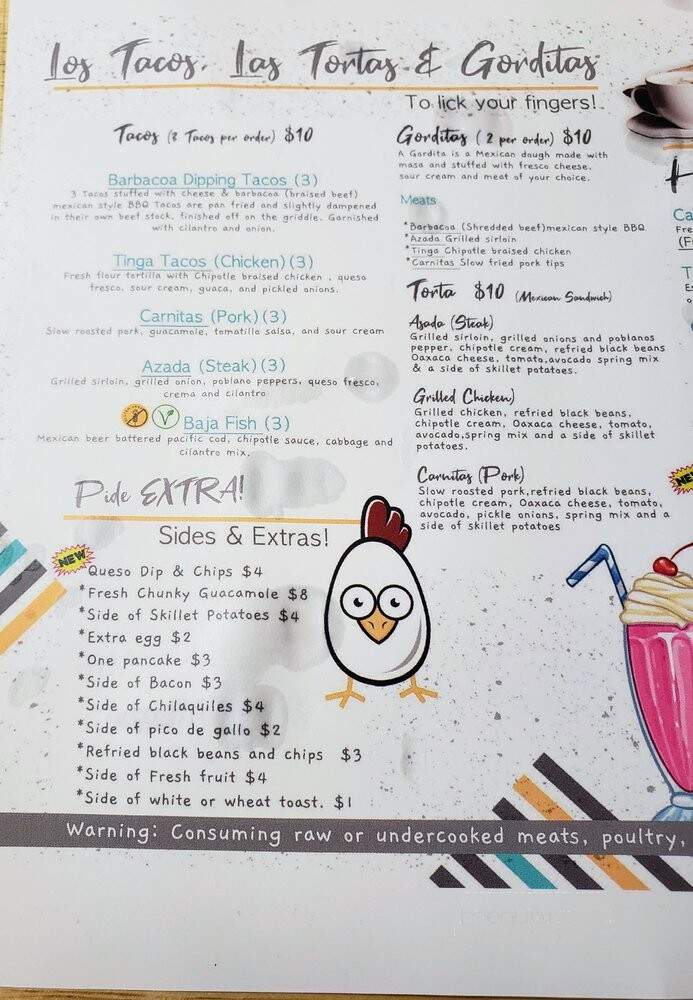 Los Tacos, Las Tortas & Gorditas
To lick your fingers!
Tacos (3 Tacos per order) $10
Barbacoa Dipping Tacos (3)
3 Tacos stuffed with cheese & barbacoa (braised beef)
mexican style BBQ Tacos are pan fried and slightly dampened
in their own beef stock, finished off on the griddle. Garnished
with cilantro and onion.
Tinga Tacos (Chicken)(3)
Fresh flour tortilla with Chipotle braised chicken , queso
fresco, sour cream, guaca, and pickled onions.
Carnitas (Pork)(3)
Slow roasted pork, guacamole, tomatillo salsa, and sour cream
Azada (Steak)(3)
Grilled sirloin, grilled onion, poblano peppers, queso fresco,
crema and cilantro
Baja Fish (3)
Mexican beer battered pacific cod, chipotle sauce, cabbage and
cilantro mix.
Gorditas ( 2 per order) $10
A Gordita is a Mexican dough made with
masa and stuffed with fresco cheese,
sour cream and meat of your choice.
Meats
*Barbacoa (Shredded beef)mexican style BBQ
*Azada Grilled sirloin
*Tinga Chipotle braised chicken
*Carnitas Slow fried pork tips
Torta $10 (Mexican Sandwich)
Azada (Steak)
Grilled sirloin, grilled onions and poblanos
pepper, chipotle cream, refried black beans
Oaxaca cheese, tomato,avocado spring mix
& a side of skillet potatoes.
Grilled Chicken)
Grilled chicken, refried black beans,
chipotle cream, Oaxaca cheese, tomato,
avocado,spring mix and a side of skillet
potatoes.
Carnitas (Pork)
Slow roasted pork,refried black beans,
chipotle cream, Oaxaca cheese, tomato,
avocado, pickle onions, spring mix and a
side of skillet potatoes
Pide EXTRA!
Sides & Extras!
NEW
*Queso Dip & Chips $4
*Fresh Chunky Guacamole $8
*Side of Skillet Potatoes $4
*Extra egg $2
*One pancake $3
*Side of Bacon $3
*Side of Chilaquiles $4
*Side of pico de gallo $2
*Refried black beans and chips $3
*Side of Fresh fruit $4
*Side of white or wheat toast. $1
Warning: Consuming raw or undercooked meats, poultry,